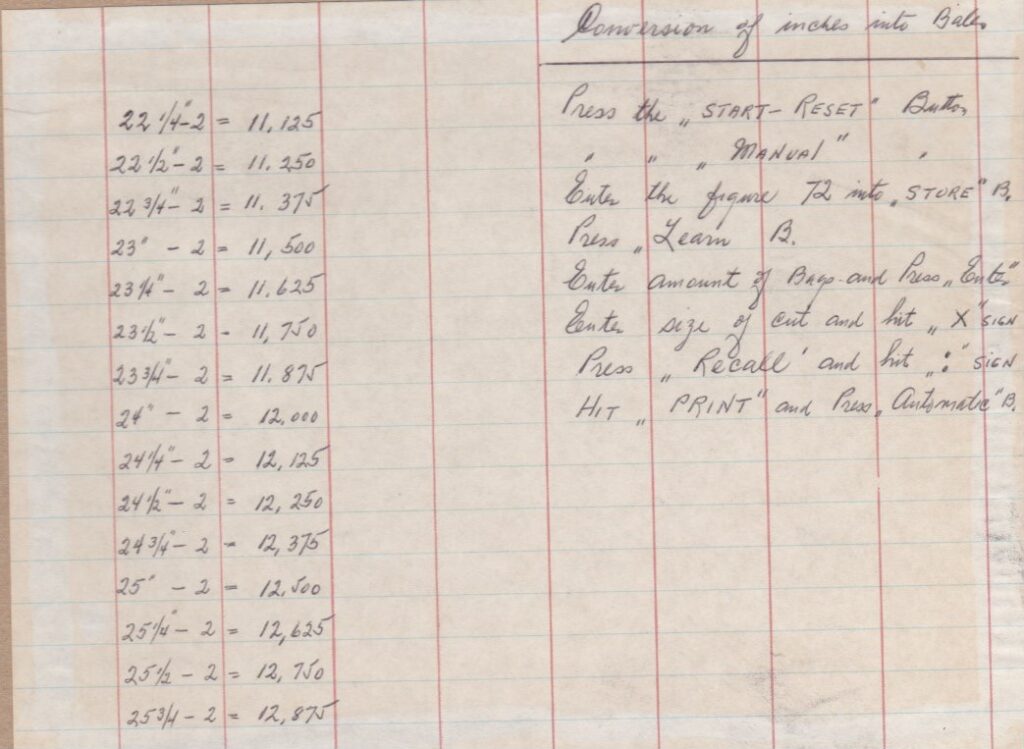 Conversion of inches into Bales
22 1/4"-2 = 11.125
22 1/2"- 2 = 11.250
22 3/4"- 2 = 11.375
23" - 2 = 11,500
23 1/4"- 2 = 11.625
23 1/2"- 2 - 11,750
23 3/4"- 2 = 11.875
24" - 2 = 12,000
24 1/4"- 2 = 12,125
24 1/2"- 2 = 12,250
24 3/4"- 2 = 12,375
25" - 2 = 12,500
25 1/4"- 2 = 12,625
25 1/2 - 2 = 12,750
25 3/4 - 2 = 12,875
Press the „START-RESET" Button
" " „MANUAL" "
Enter the figure 72 into „STORE" B.
Press „Learn B.
Enter amount of Bags and Press „Enter"
Enter size of cut and hit „X" SIGN
Press „Recall' and hit „:" SIGN
HIT „PRINT" and Press „Automatic" B.